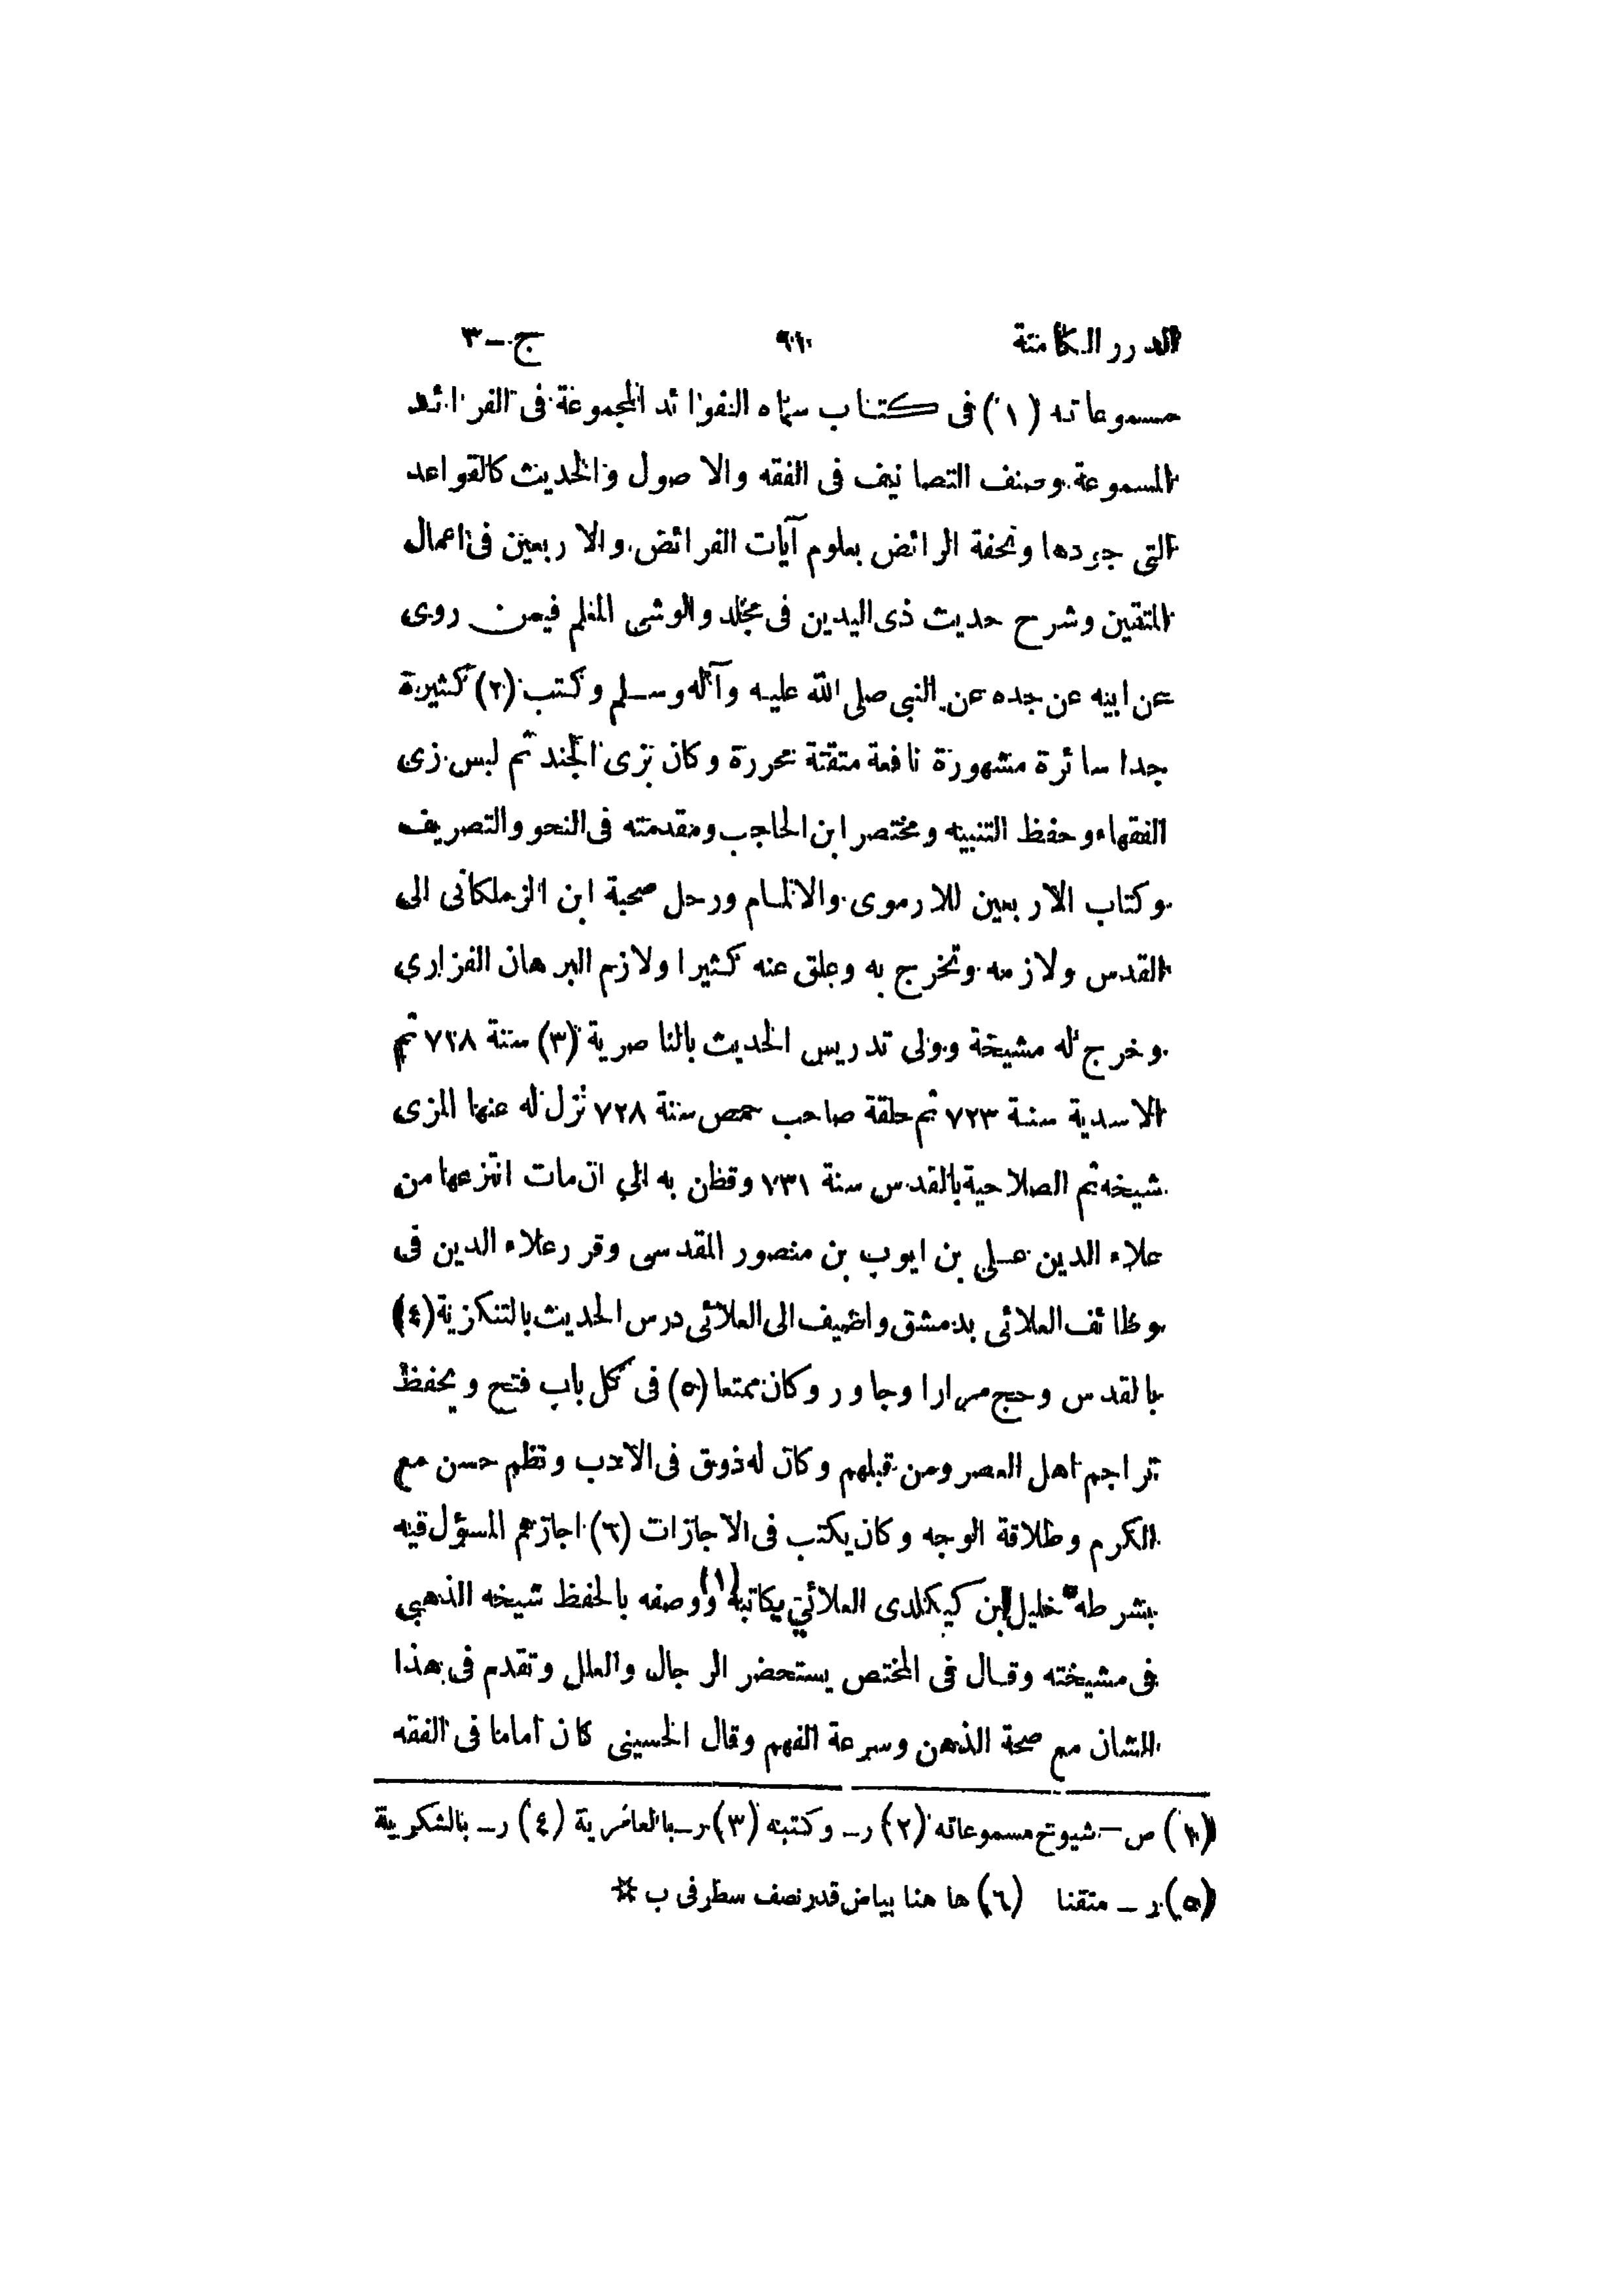 الدرر الكامنة ٩١ ج-٣
مسموعاته (١) فى كتاب سماه الفوائد المجموعة فى الفرائد
المسموعة وصنف التصانيف فى الفقه والاصول والحديث كالقواعد
التى جودها وتحفة الرائض بعلوم آيات الفرائض والاربعين فى اعمال
المتقين وشرح حديث ذى اليدين فى مجلد والوشى المعلم فيمن روى
عن ابيه عن جده عن النبى صلى الله عليه وآله وسلم وكتب (٢) كثيرة
جدا سائرة مشهورة نافعة متقنة محررة وكان بزى الجند ثم لبس زى
الفقهاء وحفظ التنبيه ومختصر ابن الحاجب ومقدمته فى النحو والتصريف
وكتاب الاربعين للارموى والالمام ورحل صحبة ابن الزملكانى الى
القدس ولازمه وتخرج به وعلق عنه كثيرا ولازم البرهان الفزارى
وخرج له مشيخة وولى تدريس الحديث بالناصرية (٣) سنة ٧١٨ ثم
الاسدية سنة ٧٢٣ ثم حلقة صاحب حمص سنة ٧٢٨ نزل له عنها المزى
شيخه ثم الصلاحية بالقدس سنة ٧٣١ وقطن به الى ان مات انتزعها من
علاء الدين على بن ايوب بن منصور المقدسى وقرر علاء الدين فى
وظائف العلائى بدمشق واضيف الى العلائى درس الحديث بالتنكزية (٤)
بالقدس وحج مرارا وجاور وكان ممتعا (٥) فى كل باب فتح ويحفظ
تراجم اهل العصر ومن قبلهم وكان له ذوق فى الادب ونظم حسن مع
الكرم وطلاقة الوجه وكان يكتب فى الاجازات (٦) اجازهم المسؤل فيه
بشرطه * خليل ابن كيكلدى العلائي يكاتبه (١) ووصفه بالحفظ شيخه الذهبى
فى مشيخته وقال فى المختص يستحضر الرجال والعلل وتقدم فى هذا
الشان مع صحة الذهن وسرعة الفهم وقال الحسينى كان اماما فى الفقه
(١) ص - شيوخ مسموعاته (٢) ر - وكتبه (٣) ر - بالعامرية (٤) ر - بالشكرية
(٥) ر - متقنا (٦) ها هنا بياض قدر نصف سطر فى ب *